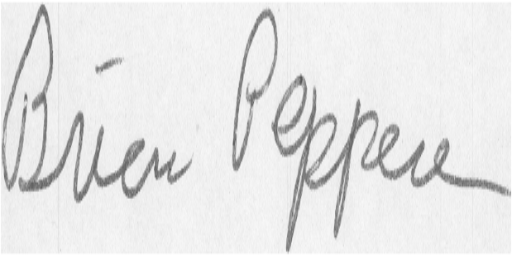 Brien Peppere